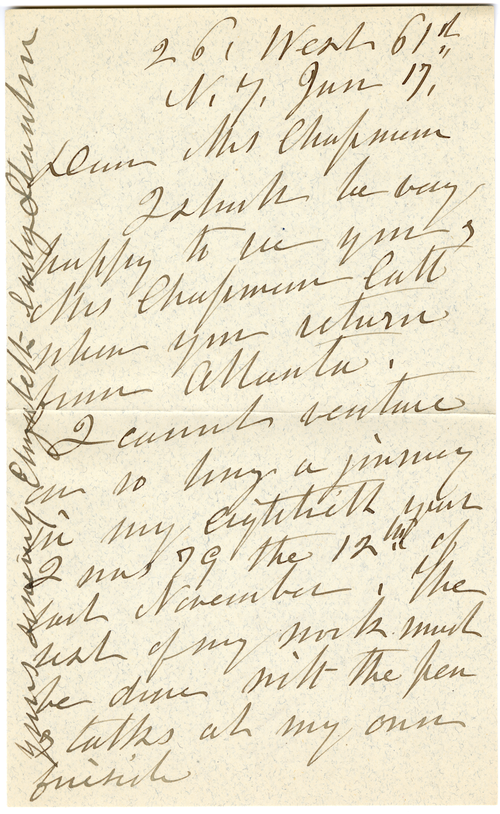 26, West 61st
N. Y. Jan 17,
Dear Mrs Chapman
I shall be very
happy to see you &
Mrs Chapman Catt
when you return
from Atlanta.
I cannot venture
on so long a journey
in my eightieth year
I was 79 the 12th of
last November. The
rest of my work must
be done with the pen
& talks at my own
fireside
yours sincerely Elizabeth Cady Stanton